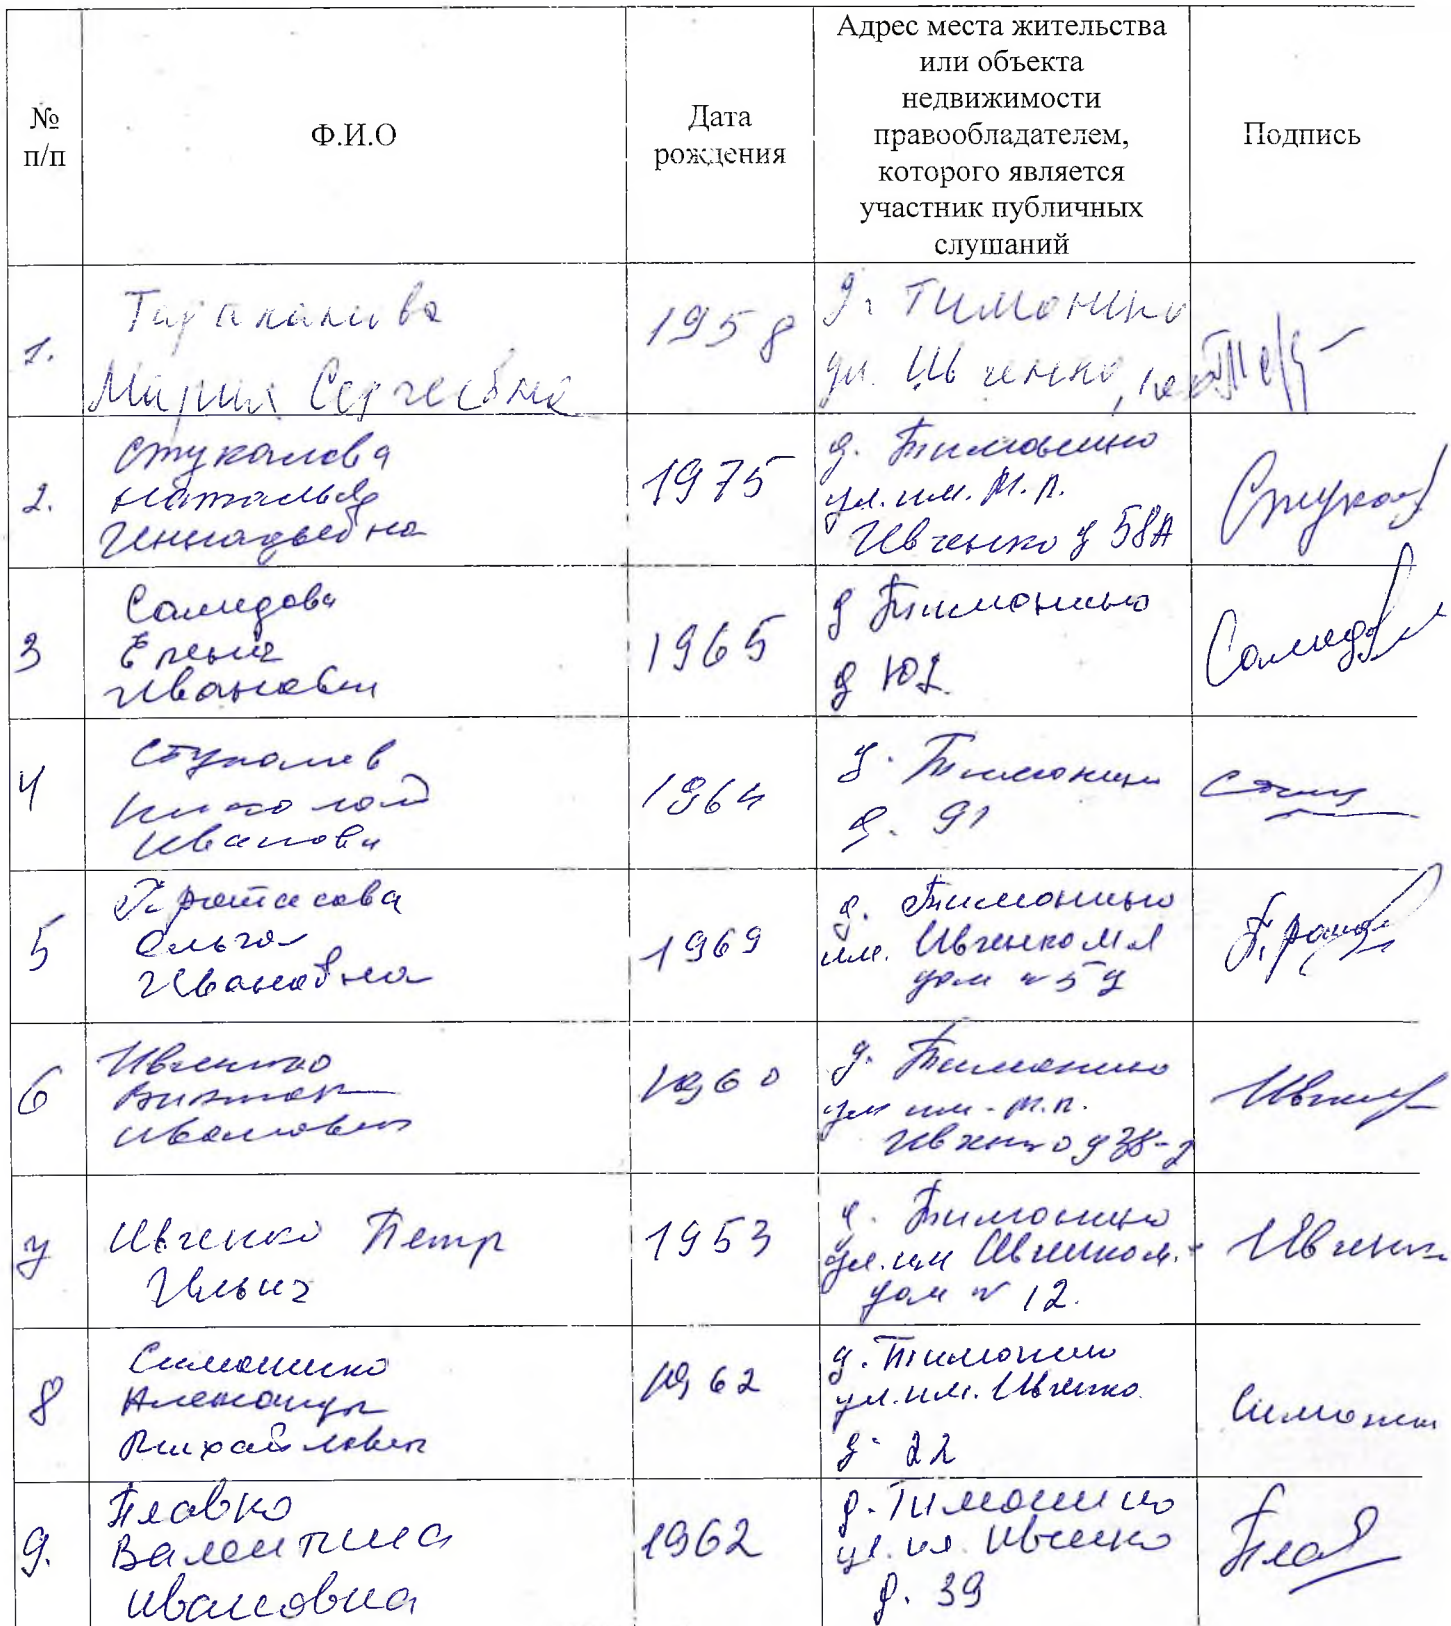 № п/п
Ф.И.О
Дата рождения
Адрес места жительства
или объекта
недвижимости
правообладателем,
которого является
участник публичных
слушаний
Подпись
1.
Тараканова
Мария Сергеевна
1958
д. Тимонино
ул. Ивченко,
2.
Стукалова
Наталья
Геннадьевна
1975
д. Тимонино
ул. им. М.П.
Ивченко д 58А
Стукал
3
Самедова
Елена
Ивановна
1965
д Тимонино
д 102
Самедов
4
Стукалов
Николай
Иванович
1964
д. Тимонино
д. 91
5
Протасова
Ольга
Ивановна
1969
д. Тимонино
им. Ивченко М.П
дом №
6
Ивченко
Виктор
Иванович
1960
д. Тимонино
ул им. М.П.
Ивченко д 38-
7
Ивченко Петр
Ильич
1953
д. Тимонино
ул. им Ивченко М.
дом № 12.
Ивченко
8
Симоненко
Александр
Михайлович
1962
д. Тимонино
ул. им. Ивченко
д. 22
Симонен
9.
Плавко
Валентина
Ивановна
1962
д. Тимонино
ул. им. Ивченко
д. 39
Плав